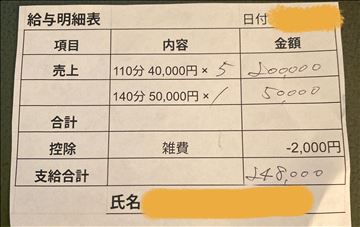 給与明細表 日付
項目 内容 金額
売上 110分 40,000円 × 5 200000
140分 50,000円 × 1 50,000
合計
控除 雑費 -2,000円
支給合計 248,000
氏名